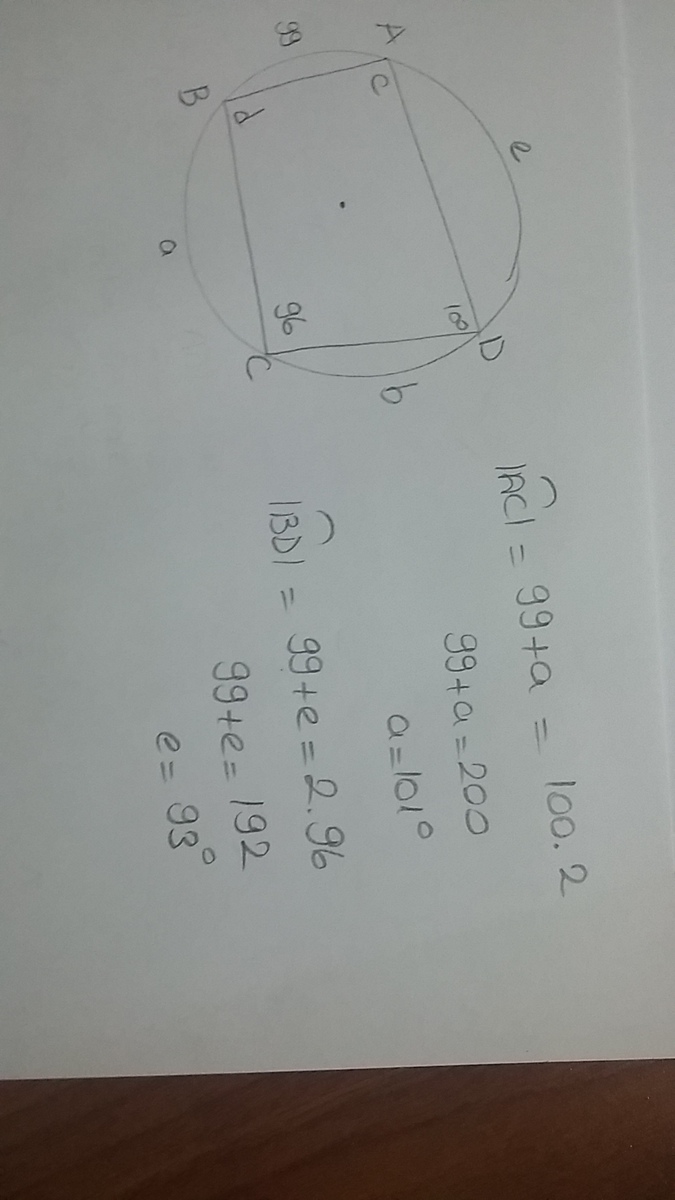 A
e
99
c
B
d
a
96
100
D
C
b
|AC| = 99+a = 100.2
99+a=200
a=101°
|BD| = 99+e=2.96
99+e=192
e=93°